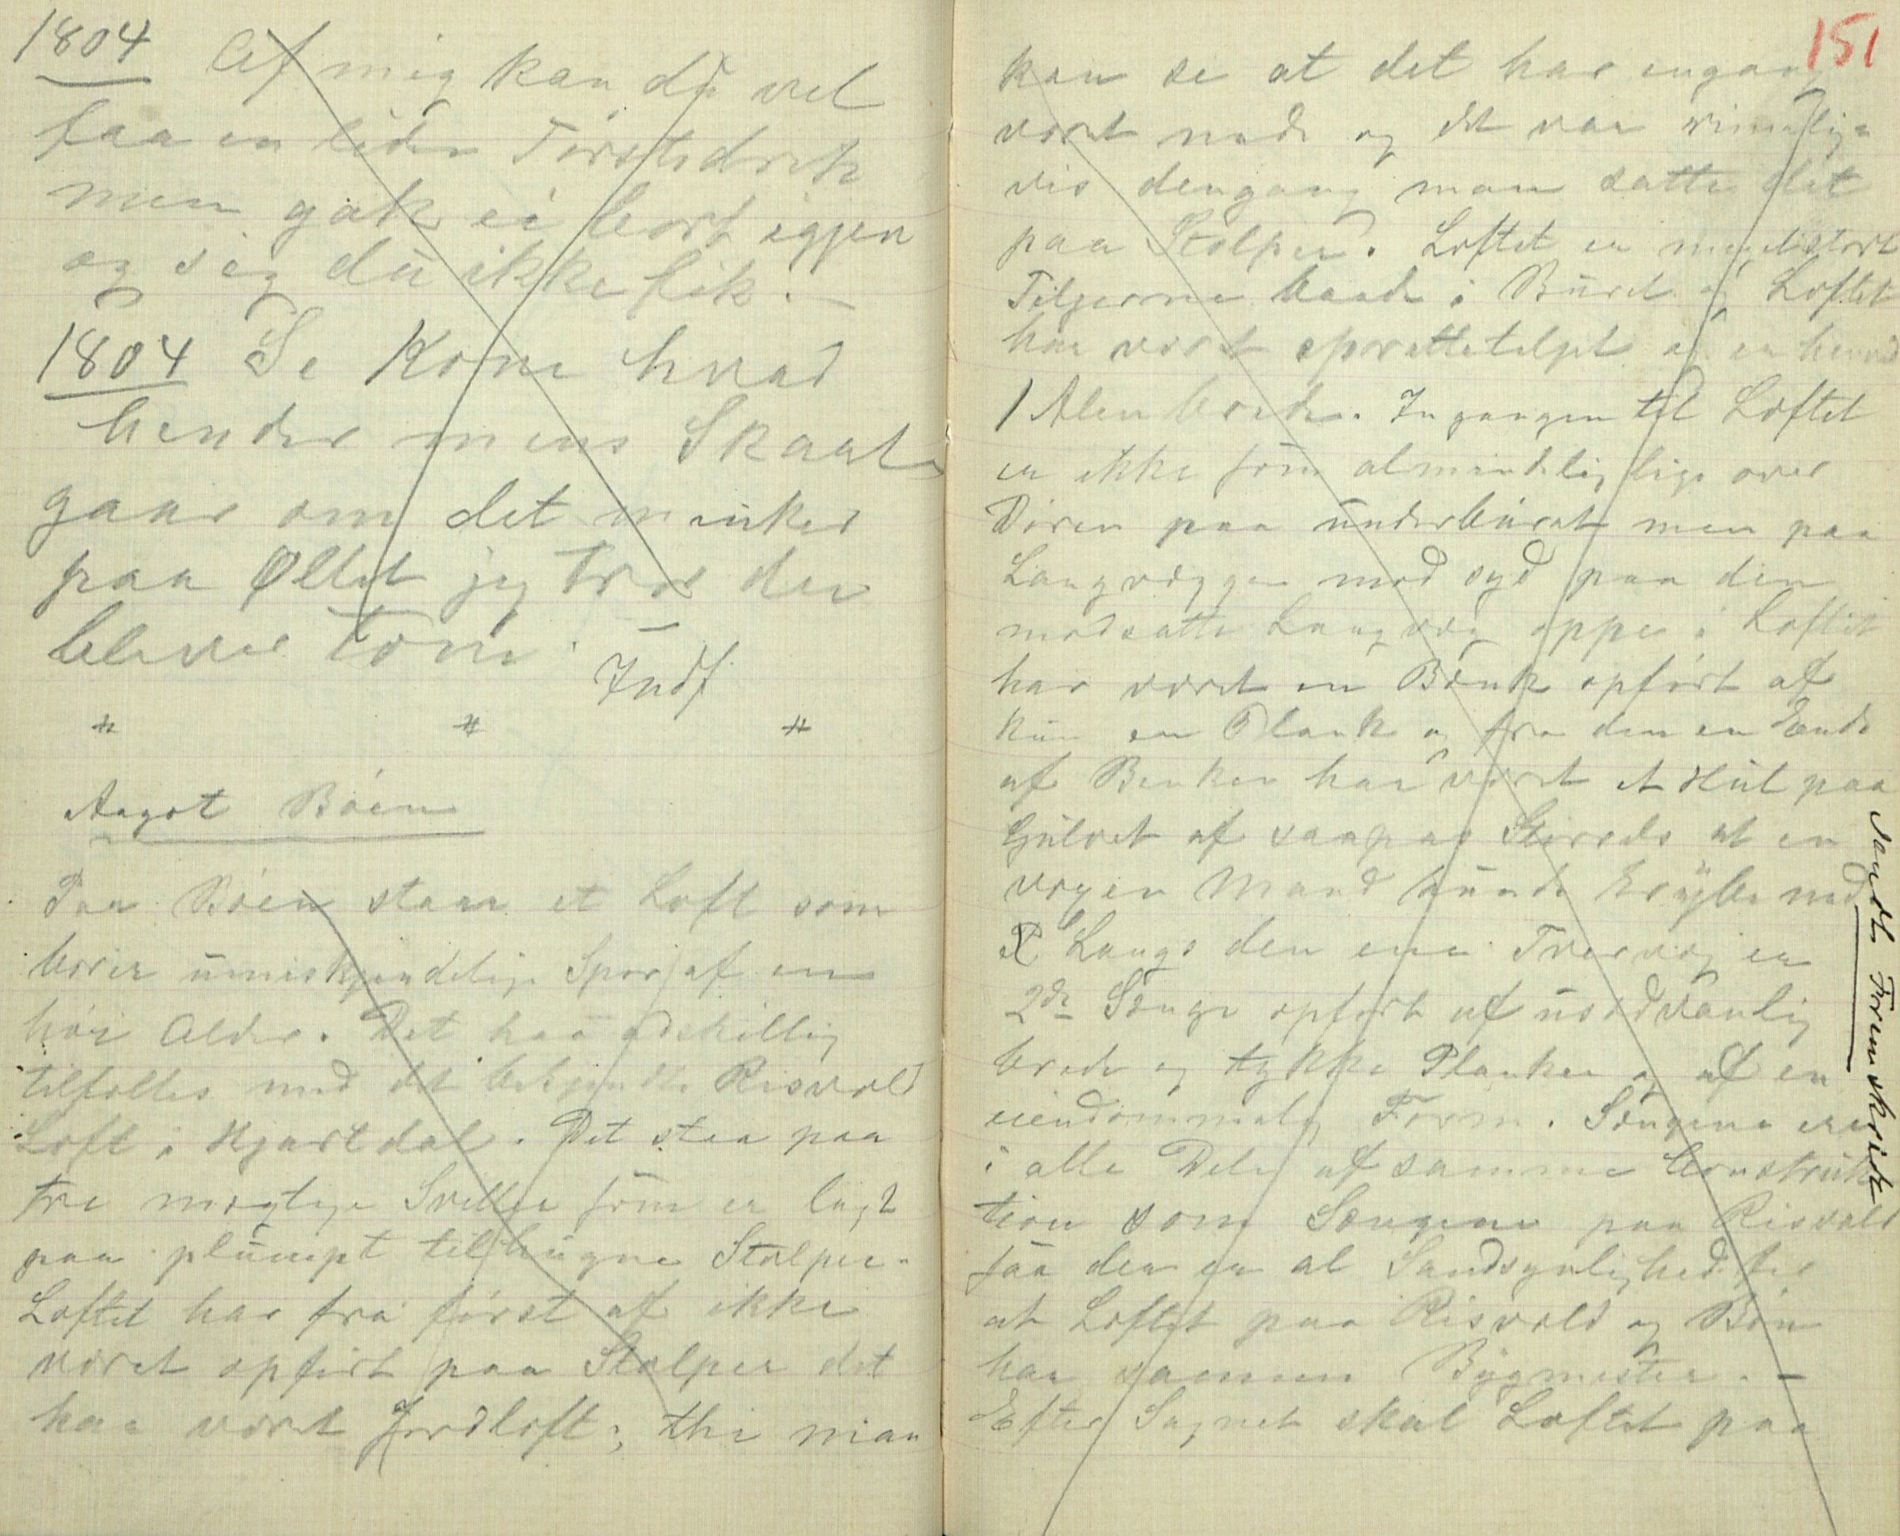 1804 Af mig kan du vel
faa en liden Tørstedrik
men gak ei bort igjen
og sig du ikke fik. —
1804 Se Kone hvad
hender mens Skaale
gaar om det minker
paa Øllet jeg tror der
bliver tom. —
Indf.
Aagot Bøen
Paa Bøen staar et Loft som
bærer umiskjendelige Spor af en
høi Alder. Det har adskillig
tilfælles med det bekjendte Risvold
Loft i Hjartdal. Det staa paa
tre mægtige Sviller som er lagt
paa plumpt tilhugne Stolper.
Loftet har fra først af ikke
været opført paa Stolper det
har været Jordloft; thi man
151
kan se at det har engang
været nede og det var rimelig
vis dengang man satte det
paa Stolper. Loftet er meget stort
Tilgerne baade i Buret og Loftet
har været sprættetelgt og er henved
1 Alen brede. Ingangen til Loftet
er ikke som almindelig lige over
Døren paa underburet men paa
Langvæggen mod syd paa den
modsatte Langvæg oppe i Loftet
har været en Bænk opført af
kun en Plank og fra den en Ende
af Benken har været et Hul paa
Gulvet af saapas Størrelse at en
vogsen Mand kunde krybe ned
Langs den ene Tvervæg er
2de Senge opført af usedvanlig
brede og tykke Planker og af en
eiendommelig Form. Sengene er
i alle Dele af samme Construk
tion som Sengene paa Risvold
saa der er al Sandsynlighed for
at Loftet paa Risvold og Bøen
har samme Bygmester. —
Efter Sagnet skal Loftet paa
Sandt Foremskrede